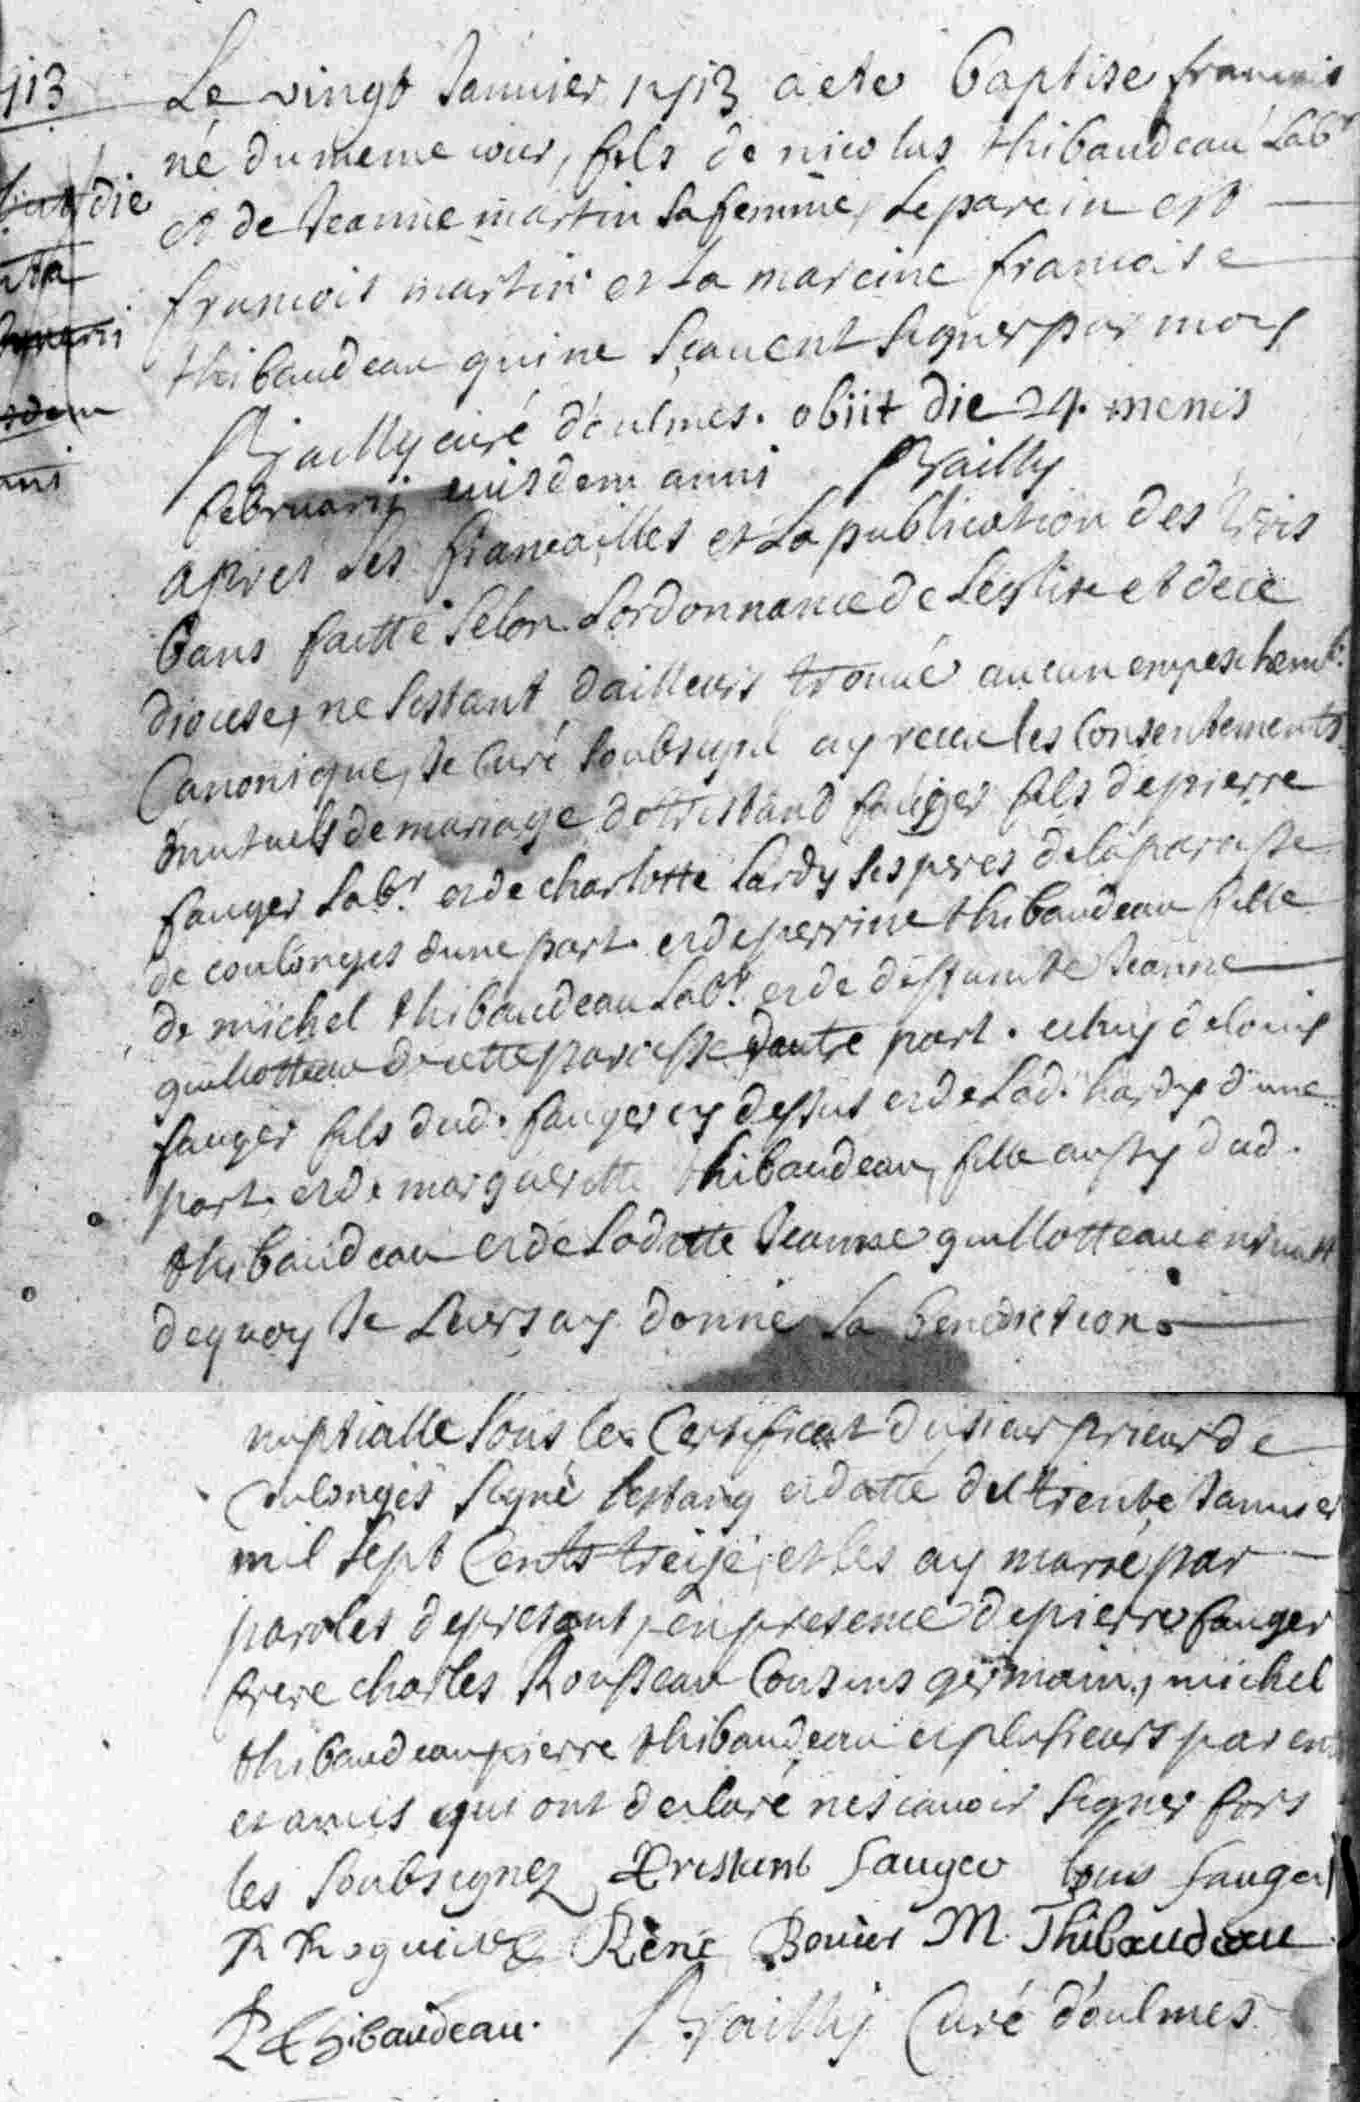 713
Le vingt Januier 1713 a eté Baptisé francois
né du meme iour, fils de nicolas thibaudeau Labr
die
et de Jeanne martin sa femme, Le parein est
francois martin et La mareine francoise
thibaudeau qui ne scauent signer par moy
Bailly curé d'oulmes. obiit die 24. mensis
februarij euisdem anni Bailly
apres les fiancailles et La publication des trois
bans faitte selon Lordonnance de Leglise et de ce
diocese, ne sestant dailleurs trouué aucun empeschemt.
Canonique, Je Curé soubsigné ay receu les Consentements
mutuels de mariage de tristand fauger fils de pierre
fauger Labr. et de charlotte hardy ses peres de la paroisse
de coulonges dune part. et de perrine thibaudeau fille
de michel thibaudeau Labr. et de deffuncte Jeanne
guillotteau de cette paroisse dautre part. et de louis
fauger fils dud. fauger cy dessus et de Lad. hardy d'une
part. et de margueritte thibaudeau, fille aussy dud.
thibaudeau et de Laditte Jeanne guillotteau ensuitte
de quoy Je Leurs ay donné La benediction
nuptialle sous le Certificat du sieur prieur de
Coulonges signé Lestang et datté du trente Januier
mil sept Cents treize, et les ay marié par
paroles de present, en presence de pierre fauger
frere charles Rousseau Cousins germain, michel
thibaudeau pierre thibaudeau et plusieurs paren
et amis qui ont declaré ne scauoir signer fors
les soubsignez Tristant fauger louis fauger
René M. Thibaudeau
P Thibaudeau. Bailly Curé d'oulmes